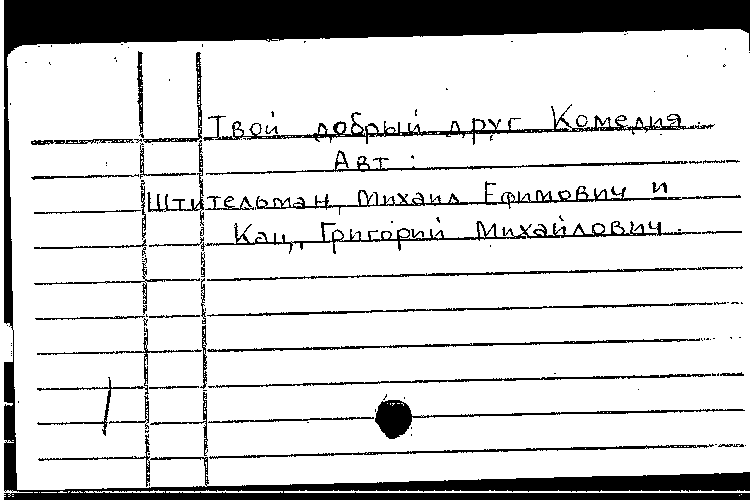 Твой добрый друг Комедия.
Авт :
Штительман, Михаил Ефимович и
Кац, Григорий Михайлович.